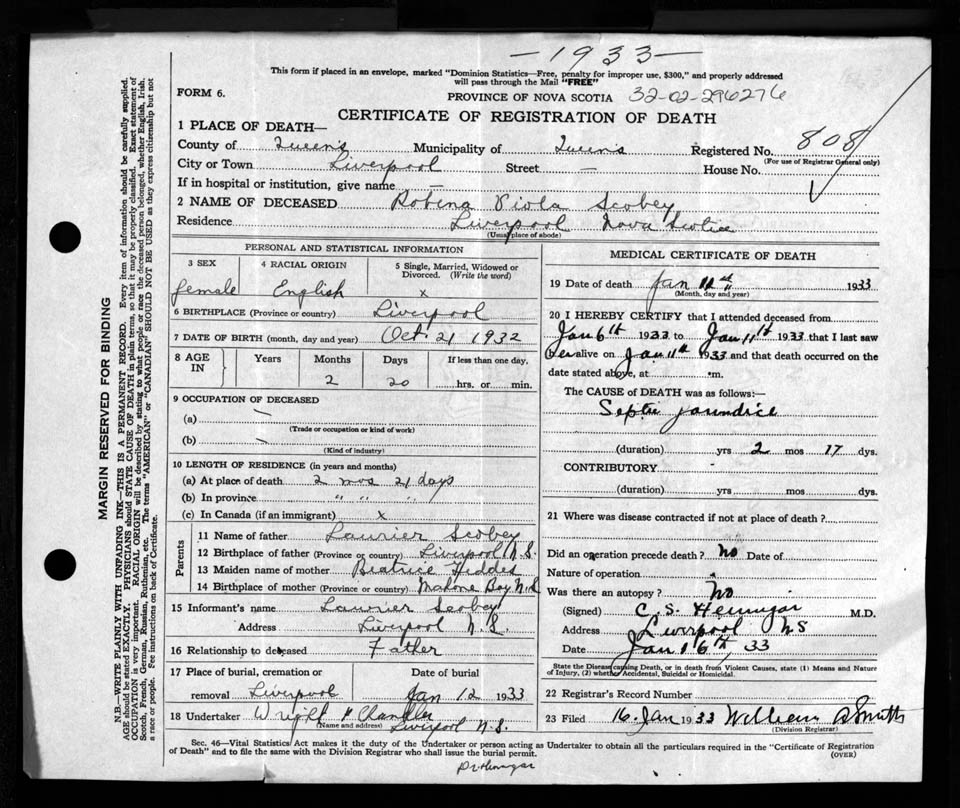 -1933-
This form if placed in an envelope, marked "Dominion Statistics—Free, penalty for improper use, $300," and properly addressed
will pass through the Mail "FREE"
FORM 6.
PROVINCE OF NOVA SCOTIA 32-02-296276
CERTIFICATE OF REGISTRATION OF DEATH
1 PLACE OF DEATH—
County of Queens Municipality of Queens Registered No. 808
(For use of Registrar General only)
City or Town Liverpool Street — House No.
If in hospital or institution, give name —
2 NAME OF DECEASED Robina Viola Scobey
Residence Liverpool Nova Scotia
(Usual place of abode)
PERSONAL AND STATISTICAL INFORMATION
3 SEX female
4 RACIAL ORIGIN English
5 Single, Married, Widowed or Divorced. (Write the word) x
6 BIRTHPLACE (Province or country) Liverpool
7 DATE OF BIRTH (month, day and year) Oct 21 1932
8 AGE IN Years Months 2 Days 20 If less than one day. hrs. or min.
9 OCCUPATION OF DECEASED
(a) —
(Trade or occupation or kind of work)
(b) —
(Kind of industry)
10 LENGTH OF RESIDENCE (in years and months)
(a) At place of death 2 mos 21 days
(b) In province " " "
(c) In Canada (if an immigrant) x
Parents
11 Name of father Laurier Scobey
12 Birthplace of father (Province or country) Liverpool N.S.
13 Maiden name of mother Beatrice Fiddes
14 Birthplace of mother (Province or country) Mahone Bay N.S
15 Informant's name Laurier Scobey
Address Liverpool N.S.
16 Relationship to deceased Father
17 Place of burial, cremation or removal Liverpool
Date of burial Jan 12 1933
18 Undertaker Wright & Chandler
(Name and address) Liverpool N.S.
MEDICAL CERTIFICATE OF DEATH
19 Date of death Jan 11th 1933
(Month, day and year)
20 I HEREBY CERTIFY that I attended deceased from
Jan 6th 1933 to Jan 11th 1933 that I last saw
her alive on Jan 11th 1933 and that death occurred on the
date stated above, at m.
The CAUSE OF DEATH was as follows:—
Septic jaundice
(duration) yrs 2 mos 17 dys.
CONTRIBUTORY
(duration) yrs. mos. dys.
21 Where was disease contracted if not at place of death?
Did an operation precede death? No Date of
Nature of operation
Was there an autopsy? No
(Signed) C. S. Hennigar M.D.
Address Liverpool NS
Date Jan 16th, 33
State the Disease causing Death, or in death from Violent Causes, state (1) Means and Nature
of Injury, (2) whether Accidental, Suicidal or Homicidal.
22 Registrar's Record Number
23 Filed 16 Jan 1933 William Smith
(Division Registrar)
Sec. 46—Vital Statistics Act makes it the duty of the Undertaker or person acting as Undertaker to obtain all the particulars required in the "Certificate of Registration
of Death" and to file the same with the Division Registrar who shall issue the burial permit.
(OVER)
Dr Hennigar
MARGIN RESERVED FOR BINDING
N.B.—WRITE PLAINLY WITH UNFADING INK—THIS IS A PERMANENT RECORD. Every item of information should be carefully supplied.
AGE should be stated EXACTLY. PHYSICIANS should STATE CAUSE OF DEATH in plain terms, so that it may be properly classified. Exact statement of
OCCUPATION is very important. RACIAL ORIGIN will be described by stating to what people or race the deceased person belonged, whether English, Irish,
Scotch, French, German, Russian, Ruthenian, etc. The terms "AMERICAN" or "CANADIAN" SHOULD NOT BE USED as they express citizenship but not
a race or people. See instructions on back of Certificate.